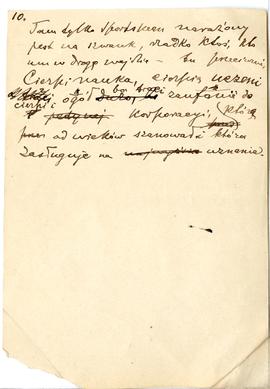 10.
Tam tylko sportsmen narażony
jest na szwank, rzadko ktoś, kto
mu w drogę wejdzie – tu przeciwnie,
Cierpi nauka, cierpią uczeni
cierpi ogół bo traci zaufanie do
korporacyi, którą
od wieków szanował i która
zasługuje na uznanie.